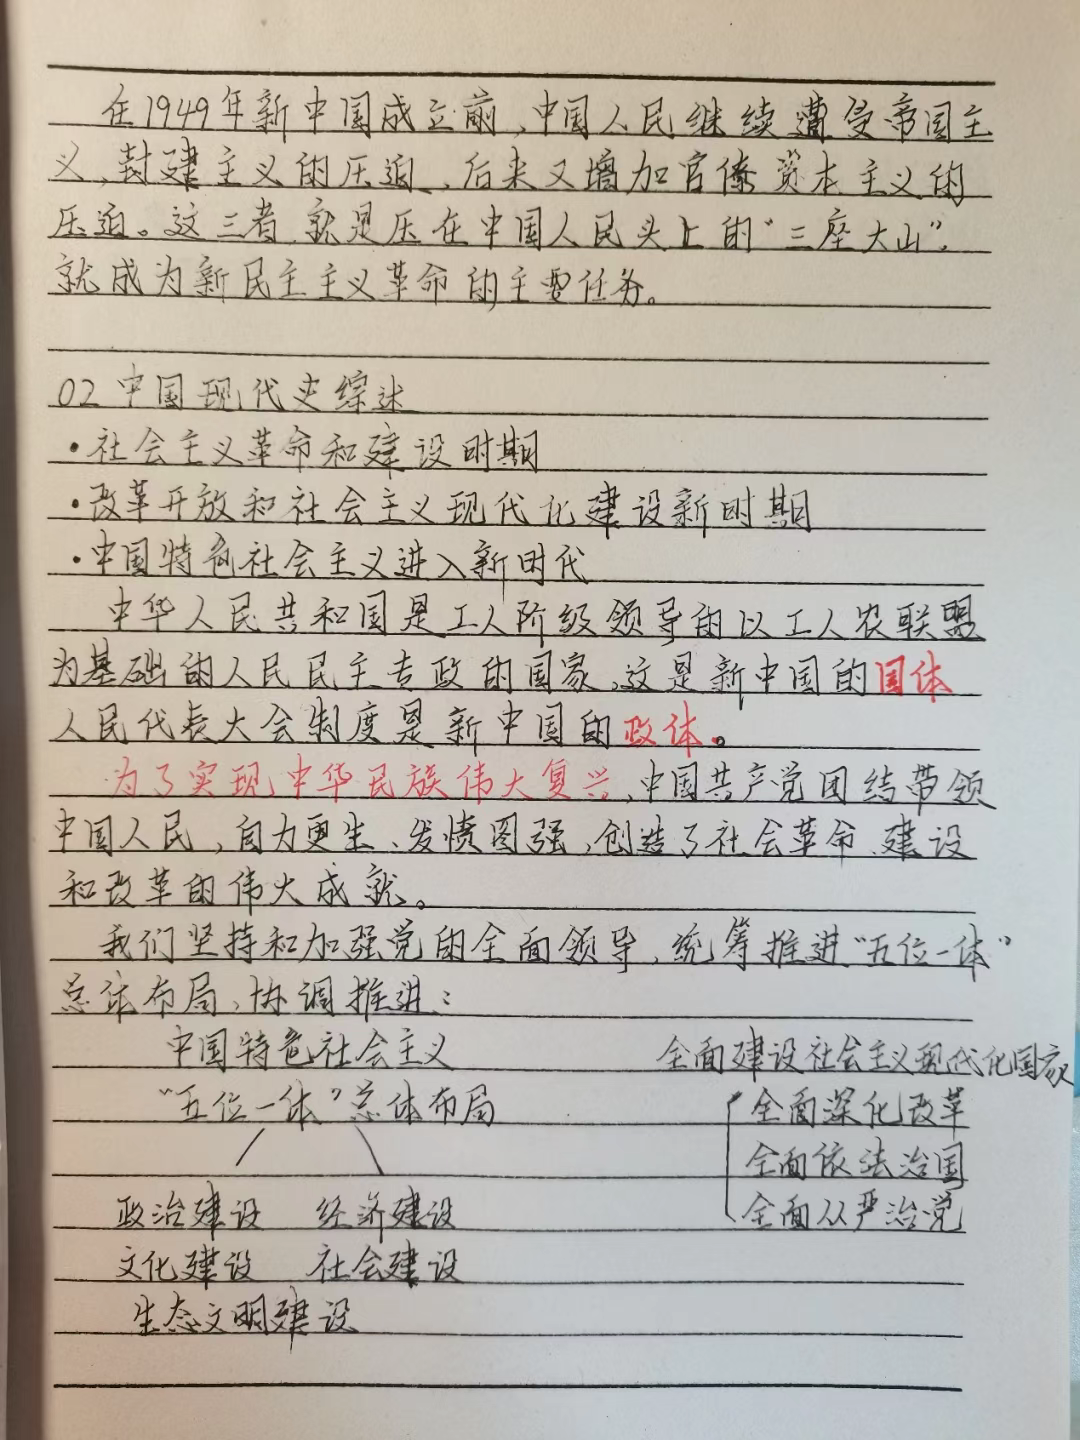 在1949年新中国成立前,中国人民继续遭受帝国主
义,封建主义的压迫、后来又增加官僚资本主义的
压迫。这三者就是压在中国人民头上的“三座大山”,
就成为新民主主义革命的主要任务。
02 中国现代史综述
·社会主义革命和建设时期
·改革开放和社会主义现代化建设新时期
·中国特色社会主义进入新时代
中华人民共和国是工人阶级领导的以工人农联盟
为基础的人民民主专政的国家,这是新中国的国体
人民代表大会制度是新中国的政体。
为了实现中华民族伟大复兴,中国共产党团结带领
中国人民,自力更生、发愤图强,创造了社会革命、建设
和改革的伟大成就。
我们坚持和加强党的全面领导,统筹推进“五位一体”
总体布局,协调推进:
中国特色社会主义 全面建设社会主义现代化国家
“五位一体”总体布局 全面深化改革
全面依法治国
政治建设 经济建设 全面从严治党
文化建设 社会建设
生态文明建设